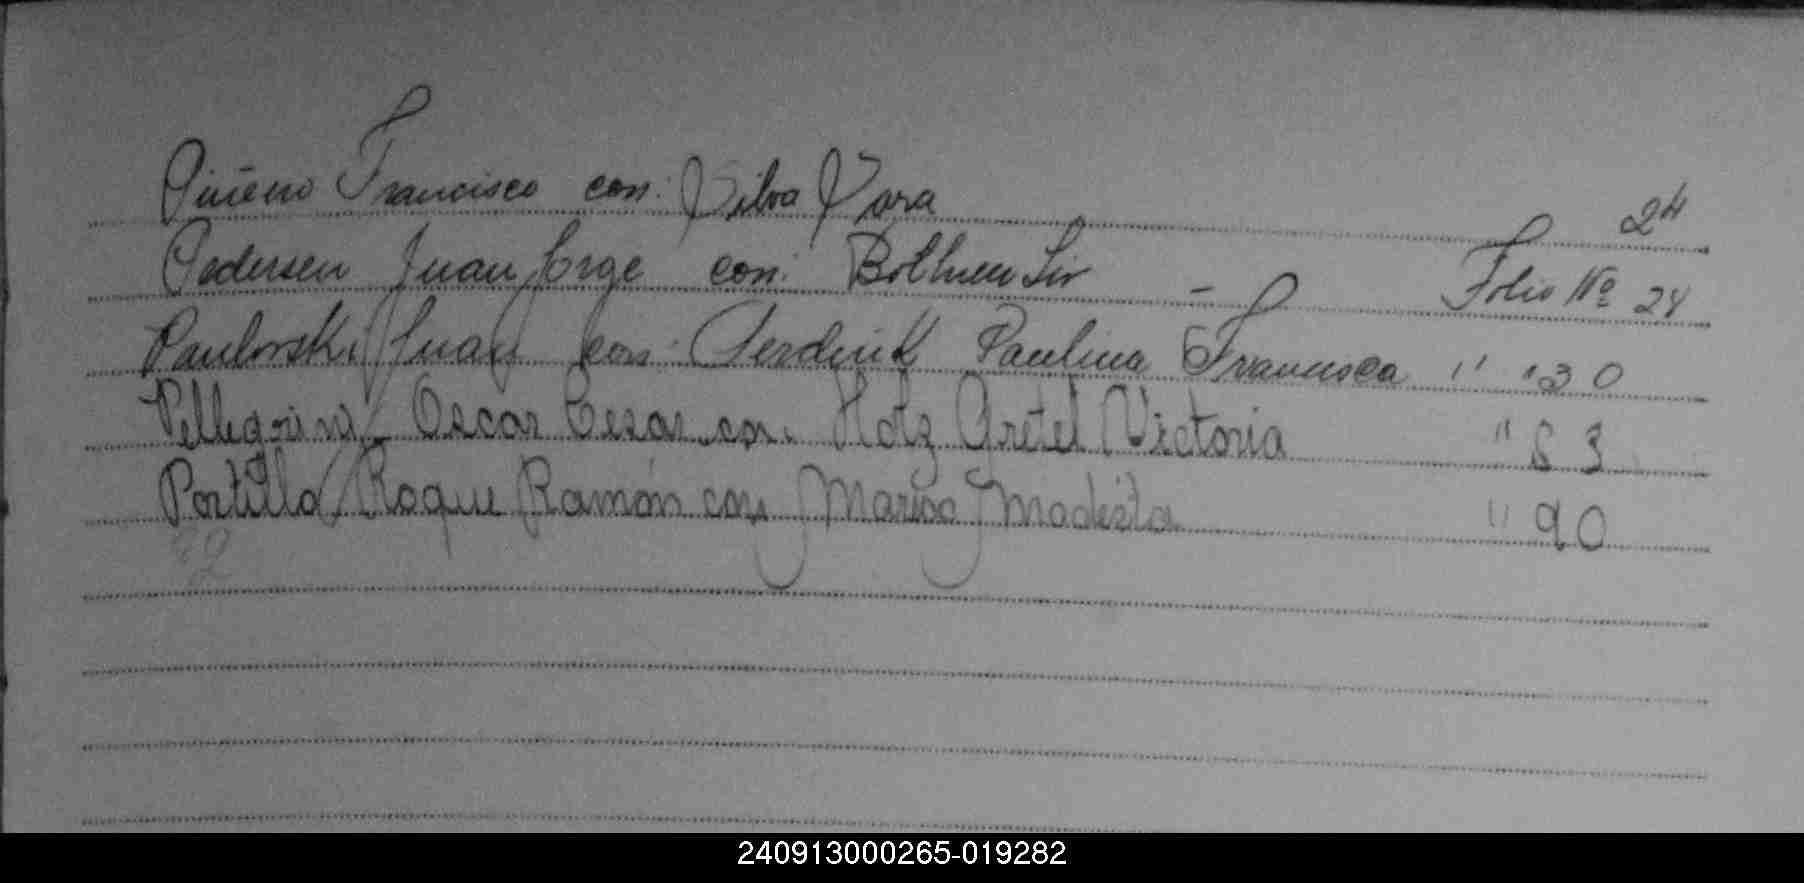 Piñero Francisco con: Silva Sara 24
Pedersen Juan Jorge con: Bothuen Liv - Folio Nº 24
Paulovski Juan con: Serdiuk Paulina Francisca " " 30
Pellegrini Oscar Cesar con. Hotz Gretel Victoria " 63
Portillo Roque Ramón con Modesta " 90
240913000265-019282